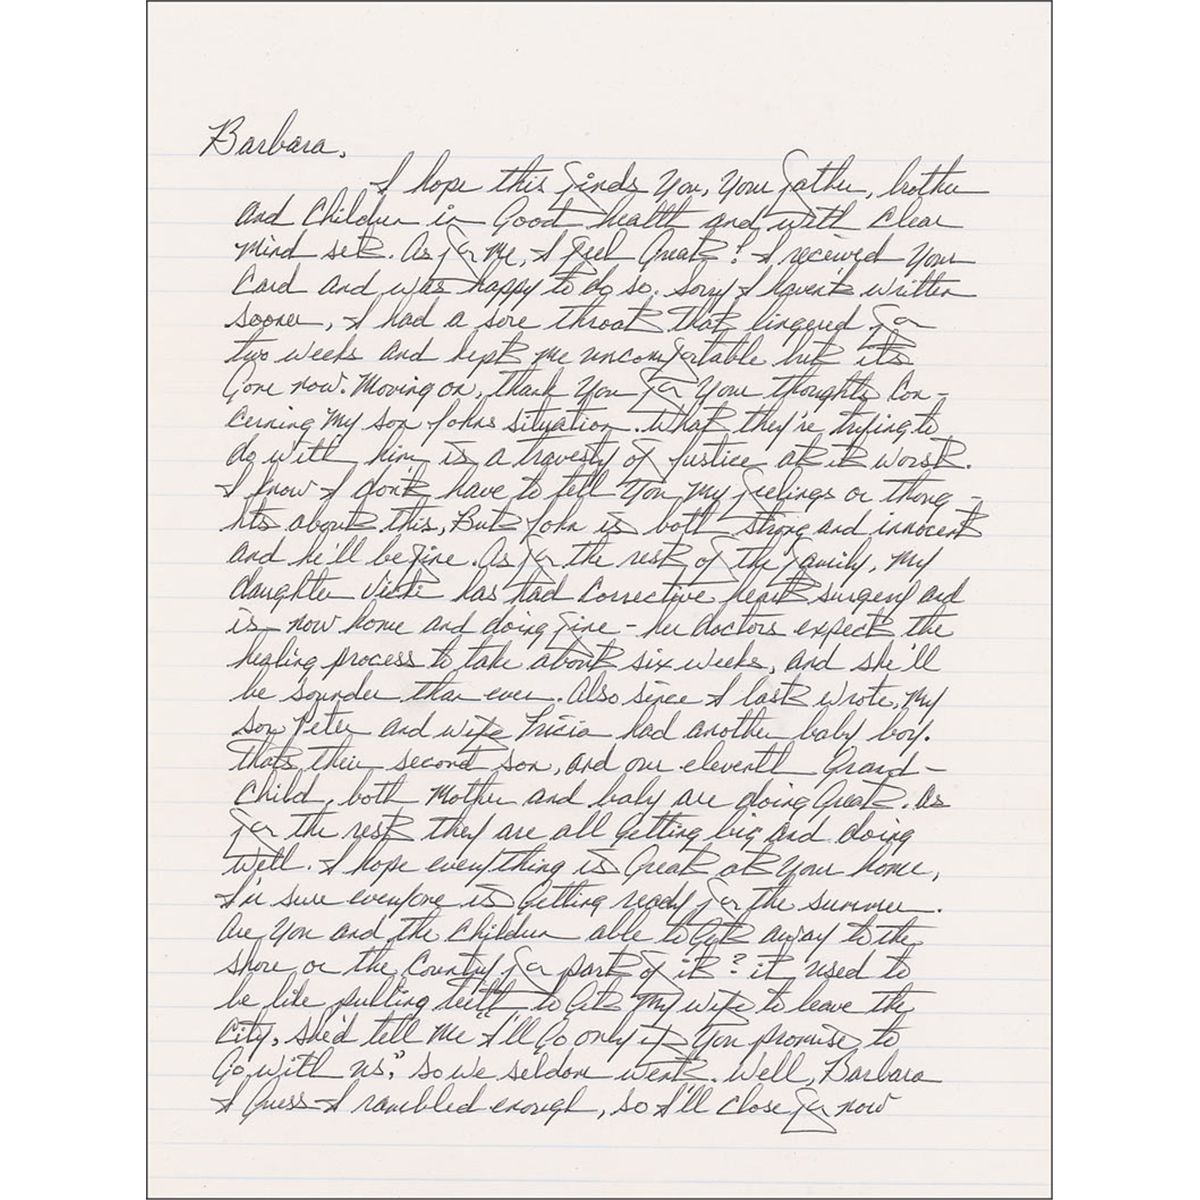 Barbara,
I hope this finds You, Your father, brother
and Children in Good health and with Clear
Mind set. As for Me, I feel Great! I received Your
Card and was happy to do so. Sorry I haven't written
sooner, I had a sore throat that lingered for
two weeks and kept me uncomfortable but its
Gone now. Moving on, thank You for Your thoughts Con-
cerning My son Johns situation. What they're trying to
do with him is a travesty of Justice at it worst.
I know I don't have to tell You My feelings or thoug-
hts about this, But John is both strong and innocent
and he'll be fine. As for the rest of the family, My
daughter Vicki has had Corrective heart surgery and
is now home and doing fine - her doctors expect the
healing process to take about six weeks, and she'll
be sounder than ever. Also since I last wrote, My
son Peter and wife Tricia had another baby boy.
Thats their second son, and our eleventh Grand-
Child, both Mother and baby are doing Great. As
for the rest they are all Getting big and doing
well. I hope everything is Great at Your home,
I'm sure everyone is Getting ready for the summer.
Are You and the Children able to Get away to the
shore or the Country for part of it? it used to
be like pulling teeth to Get My wife to leave the
City, she'd tell Me "I'll Go only if You promise to
Go with us," so we seldom went. Well, Barbara
I Guess I rambled enough, so I'll close for now